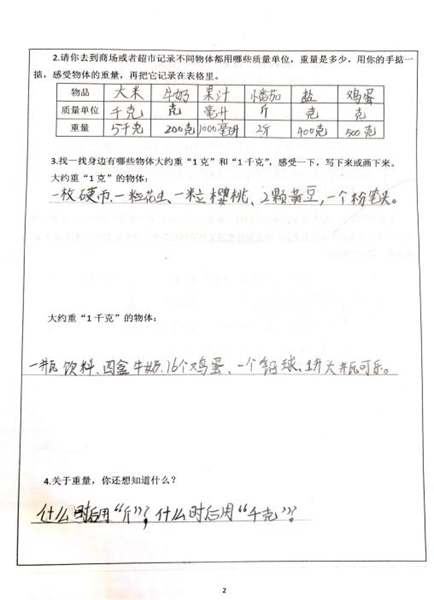 2.请你去到商场或者超市记录不同物体都用哪些质量单位，重量是多少。用你的手掂一
掂，感受物体的重量，再把它记录在表格里。
物品 大米 牛奶 果汁 番茄 盐 鸡蛋
质量单位 千克 克 毫升 斤 克 克
重量 5千克 200克 1000毫升 2斤 400克 500克
3.找一找身边有哪些物体大约重“1克”和“1千克”，感受一下，写下来或画下来。
大约重“1克”的物体：
一枚硬币、一粒花生、一粒樱桃、2颗黄豆，一个粉笔头。
大约重“1千克”的物体：
一瓶饮料、四盒牛奶、16个鸡蛋、一个铅球、1升大瓶可乐。
4.关于重量，你还想知道什么？
什么时后用“斤”？什么时后用“千克”？
2